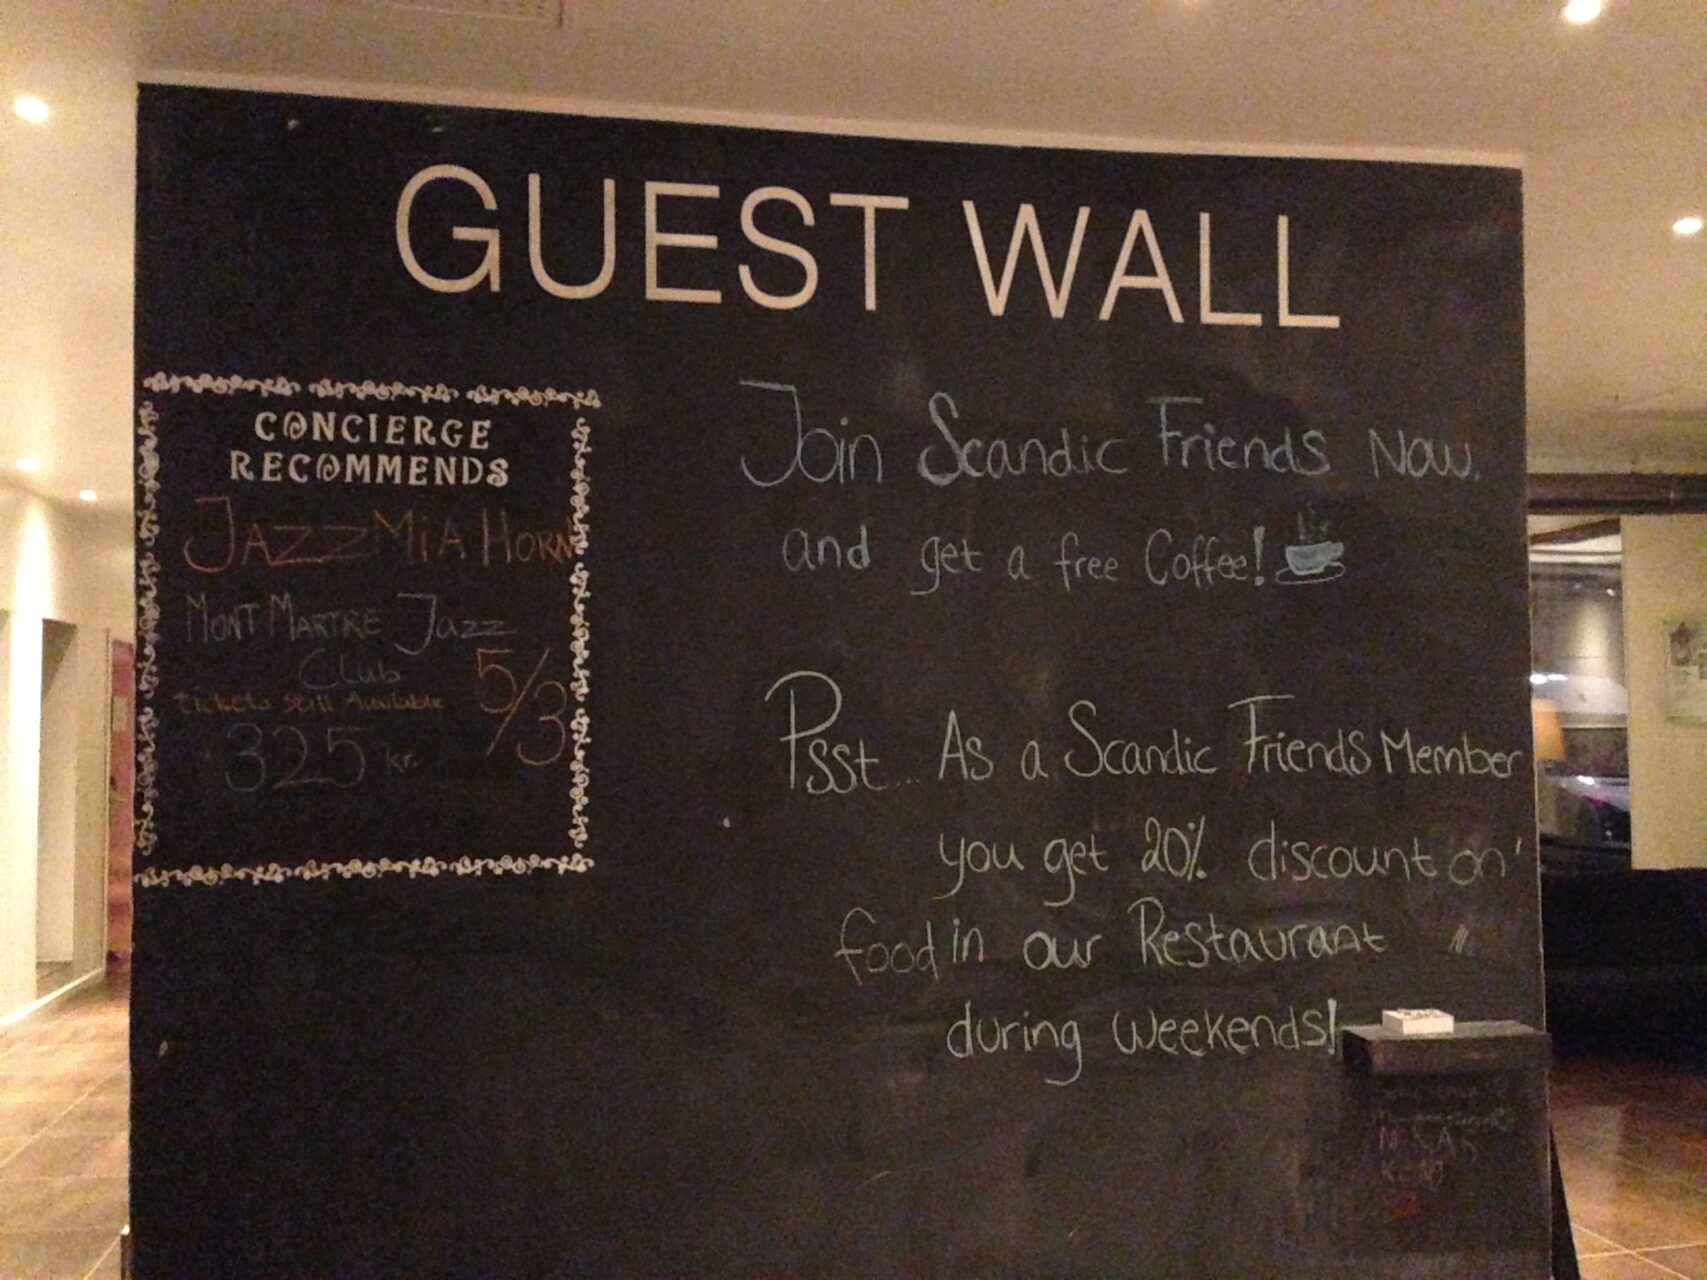 GUEST WALL
CONCIERGE
RECOMMENDS
JAZZ MiA HORN
MONT MARTRE Jazz
Club
tickets still Available
5/3
325 kr.
Join Scandic Friends Now.
and get a free Coffee!
Psst... As a Scandic Friends Member
you get 20% discount on
food in our Restaurant
during weekends!